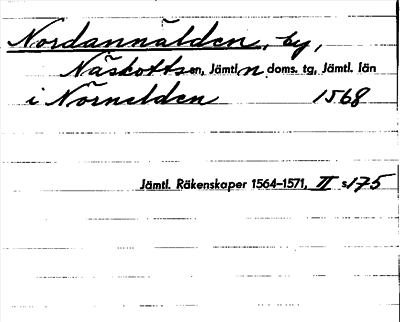 Nordannälden, by,
Näskotts sn, Jämtl. n doms. tg, Jämtl. län
i Nörnelden 1568
Jämtl. Räkenskaper 1564-1571, II s. 175